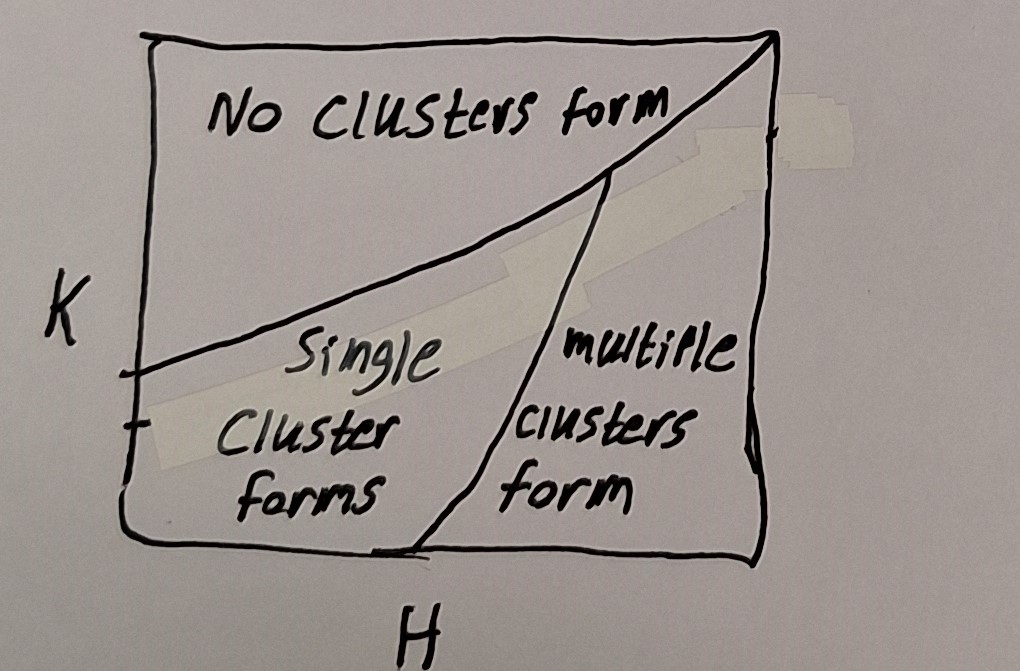 No Clusters form
K
Single
Cluster
forms
multiple
clusters
form
H